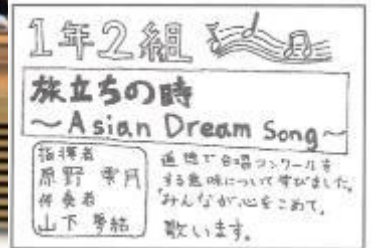 1年2組
旅立ちの時
～Asian Dream Song～
指揮者
原野
伴奏者
山下
道徳で合唱コンクールを
する意味について学びました。
みんなが心をこめて、
歌います。